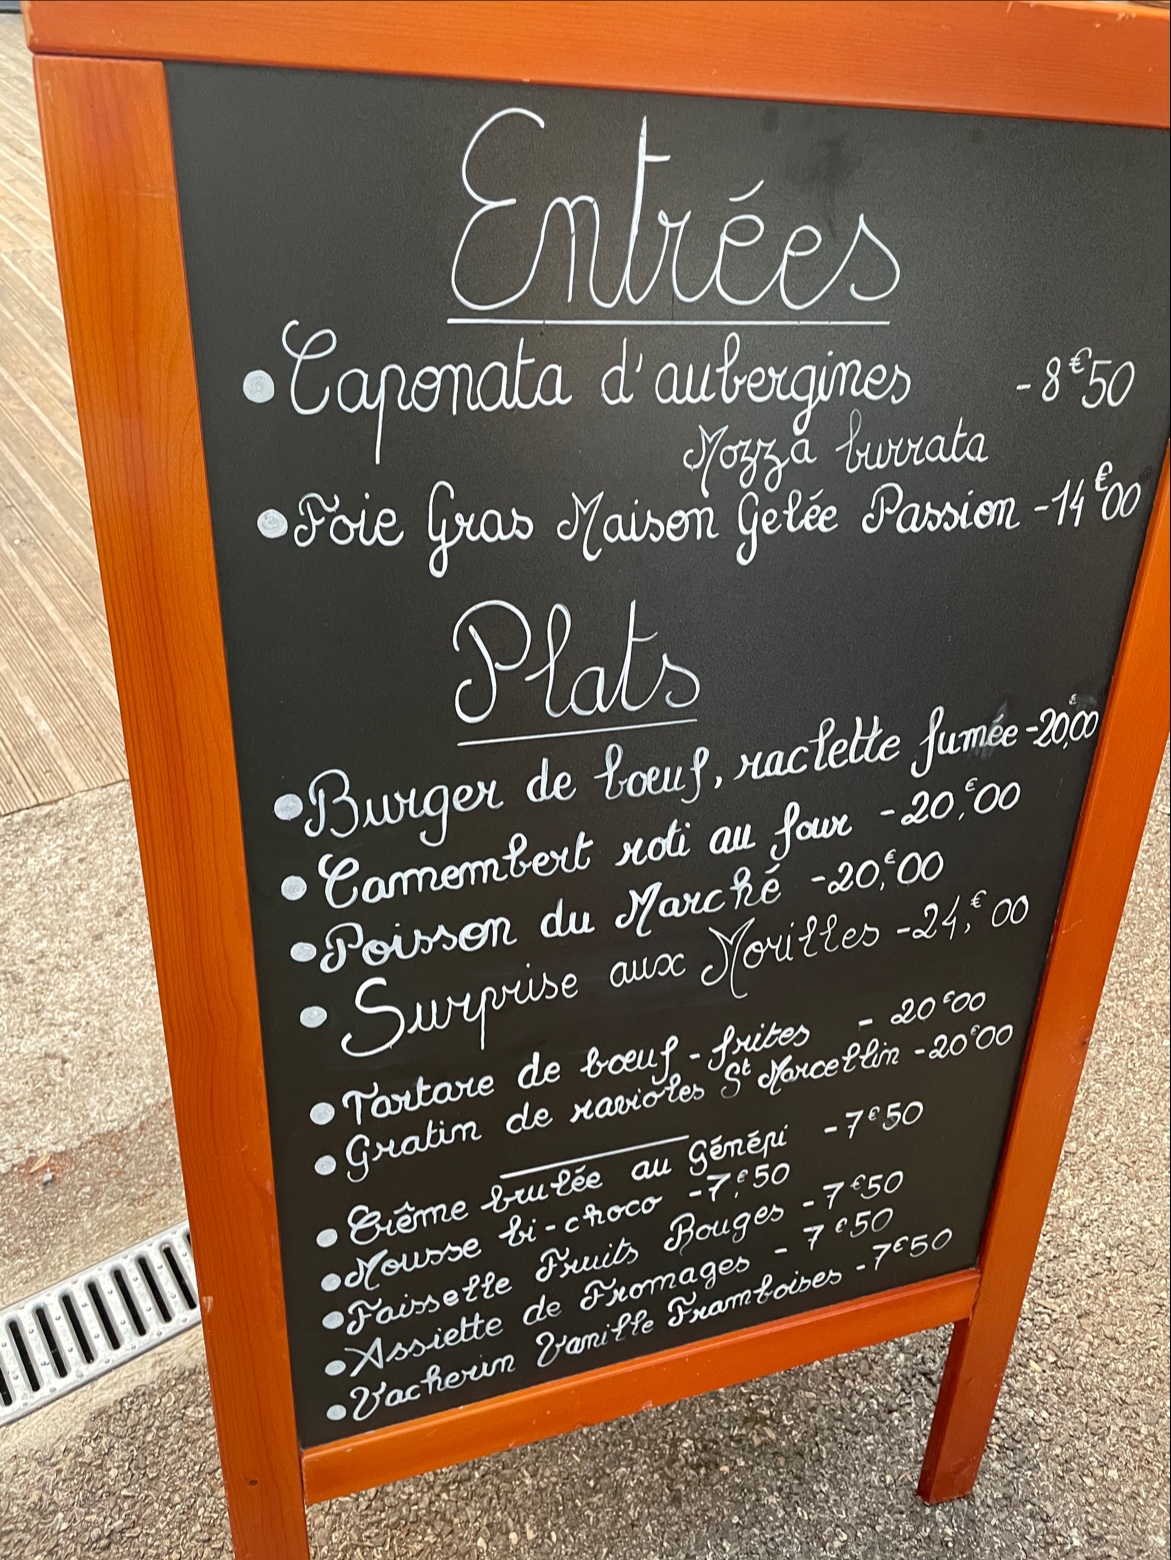 Entrées
• Caponata d'aubergines - 8€50
Mozza burrata
• Foie Gras Maison Gelée Passion - 14€00
Plats
• Burger de bœuf, raclette fumée - 20,€00
• Camembert roti au four - 20,€00
• Poisson du Marché - 20,€00
• Surprise aux Morilles - 24,€00
• Tartare de bœuf - frites - 20€00
• Gratin de ravioles St Marcellin - 20€00
• Crême brulée au génépi - 7€50
• Mousse bi-choco - 7,€50
• Faisselle Fruits Rouges - 7€50
• Assiette de Fromages - 7€50
• Vacherin Vanille Framboises - 7€50